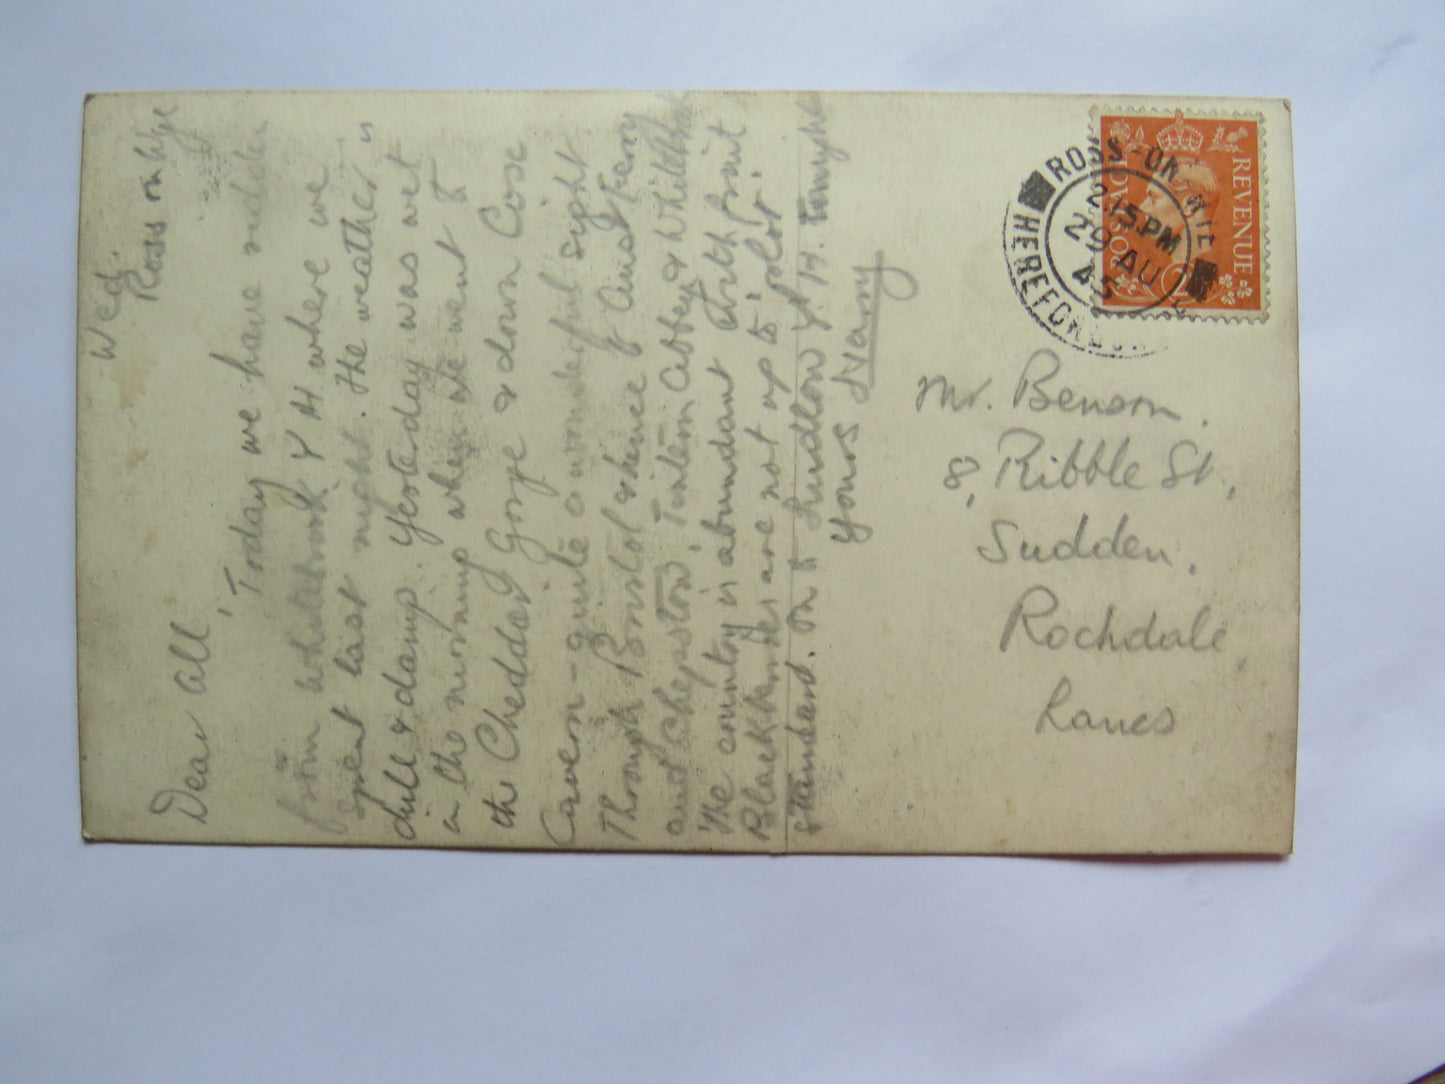 Wed.
Ross on Wye
Dear all,
Today we have ridden
from Whitebrook Y H where we
spent last night. The weather is
dull & damp. Yesterday was wet
in the morning when we went to
the Cheddar Gorge & down Cose
Cavern - quite a wonderful sight
Through Bristol & thence to Aust Ferry
and Chepstow, Tintern Abbey & Whitebrook
The country is abundant with fruit
Blackberries are not up to 'plot'
standard. On to Ludlow Y H. tonight
Yours Harry
REVENUE
WINDSOR
2
ROSS-ON-WYE
2.15 PM
29 AU
45
HEREFORDSHIRE
Mr. Benson,
8, Ribble St,
Sudden,
Rochdale,
Lancs